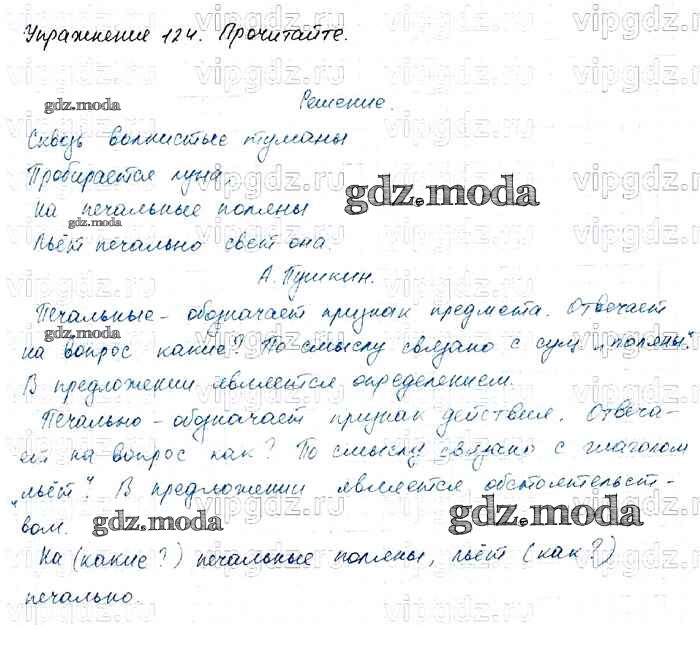 Упражнение 124. Прочитайте.
Решение.
Сквозь волнистые туманы
Пробирается луна,
На печальные поляны
Льёт печально свет она.
А. Пушкин.
Печальные – обозначает признак предмета. Отвечает
на вопрос какие? По смыслу связано с сущ. поляны.
В предложении является определением.
Печально – обозначает признак действия. Отвеча-
ет на вопрос как? По смыслу связано с глаголом
"льёт". В предложении является обстоятельст-
вом.
На (какие?) печальные поляны, льёт (как?)
печально.
gdz.moda
gdz.moda
gdz.moda
gdz.moda
gdz.moda
gdz.moda
vipgdz.ru